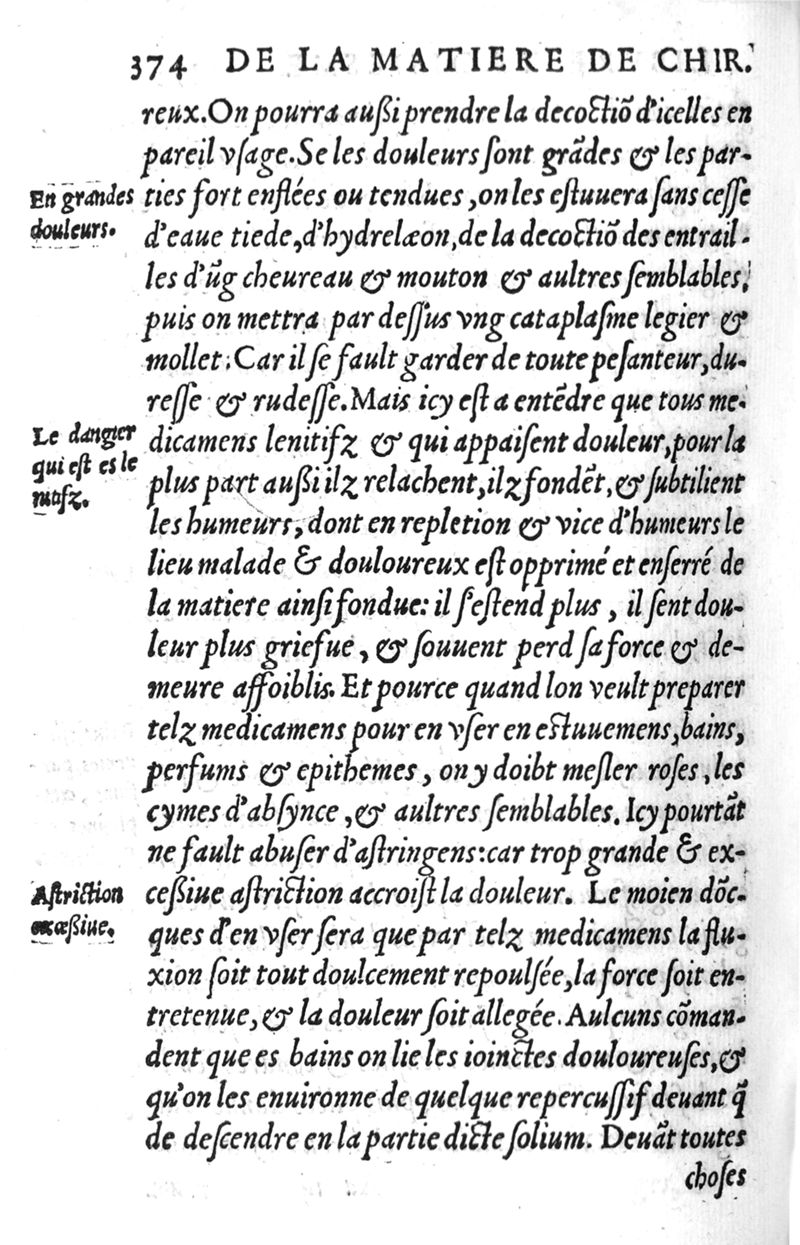 374 DE LA MATIERE DE CHIR.
reux. On pourra außi prendre la decoctiõ d'icelles en
pareil vſage. Se les douleurs ſont grãdes & les par-
En grandes
douleurs.
ties fort enflées ou tendues, on les eſtuuera ſans ceſſe
d'eaue tiede, d'hydrelæon, de la decoctiõ des entrail-
les d'ũg cheureau & mouton & aultres ſemblables,
puis on mettra par deſſus vng cataplaſme legier &
mollet: Car il ſe fault garder de toute peſanteur, du-
reſſe & rudeſſe. Mais icy eſt a entẽdre que tous me-
Le dangier
qui eſt es le
nitifz.
dicamens lenitifz & qui appaiſent douleur, pour la
plus part außi ilz relachent, ilz fondẽt, & ſubtilient
les humeurs, dont en repletion & vice d'humeurs le
lieu malade & douloureux eſt opprimé et enſerré de
la matiere ainſi fondue: il ſ'eſtend plus, il ſent dou-
leur plus griefue, & ſouuent perd ſa force & de-
meure affoiblis. Et pource quand lon veult preparer
telz medicamens pour en vſer en eſtuuemens, bains,
perfums & epithemes, on y doibt meſler roſes, les
cymes d'abſynce, & aultres ſemblables. Icy pourtãt
ne fault abuſer d'aſtringens: car trop grande & ex-
Aſtriction
excæßiue.
ceßiue aſtriction accroiſt la douleur. Le moien dõc-
ques d'en vſer ſera que par telz medicamens la flu-
xion ſoit tout doulcement repoulſée, la force ſoit en-
tretenue, & la douleur ſoit allegée. Aulcuns cõman-
dent que es bains on lie les ioinctes douloureuſes, &
qu'on les enuironne de quelque repercuſſif deuant q̃
de deſcendre en la partie dicte ſolium. Deuãt toutes
choſes